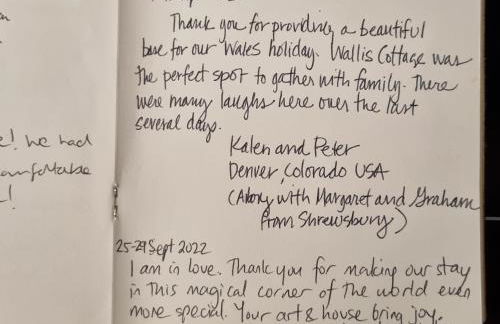 e! we had
comfortable
!
Thank you for providing a beautiful
base for our Wales holiday. Wallis Cottage was
the perfect spot to gather with family. There
were many laughs here over the last
several days.
Kalen and Peter
Denver, Colorado USA
(Along with Margaret and Graham
from Shrewsbury)
25-29 Sept 2022
I am in love. Thank you for making our stay
in this magical corner of the world even
more special. Your art & house bring joy.